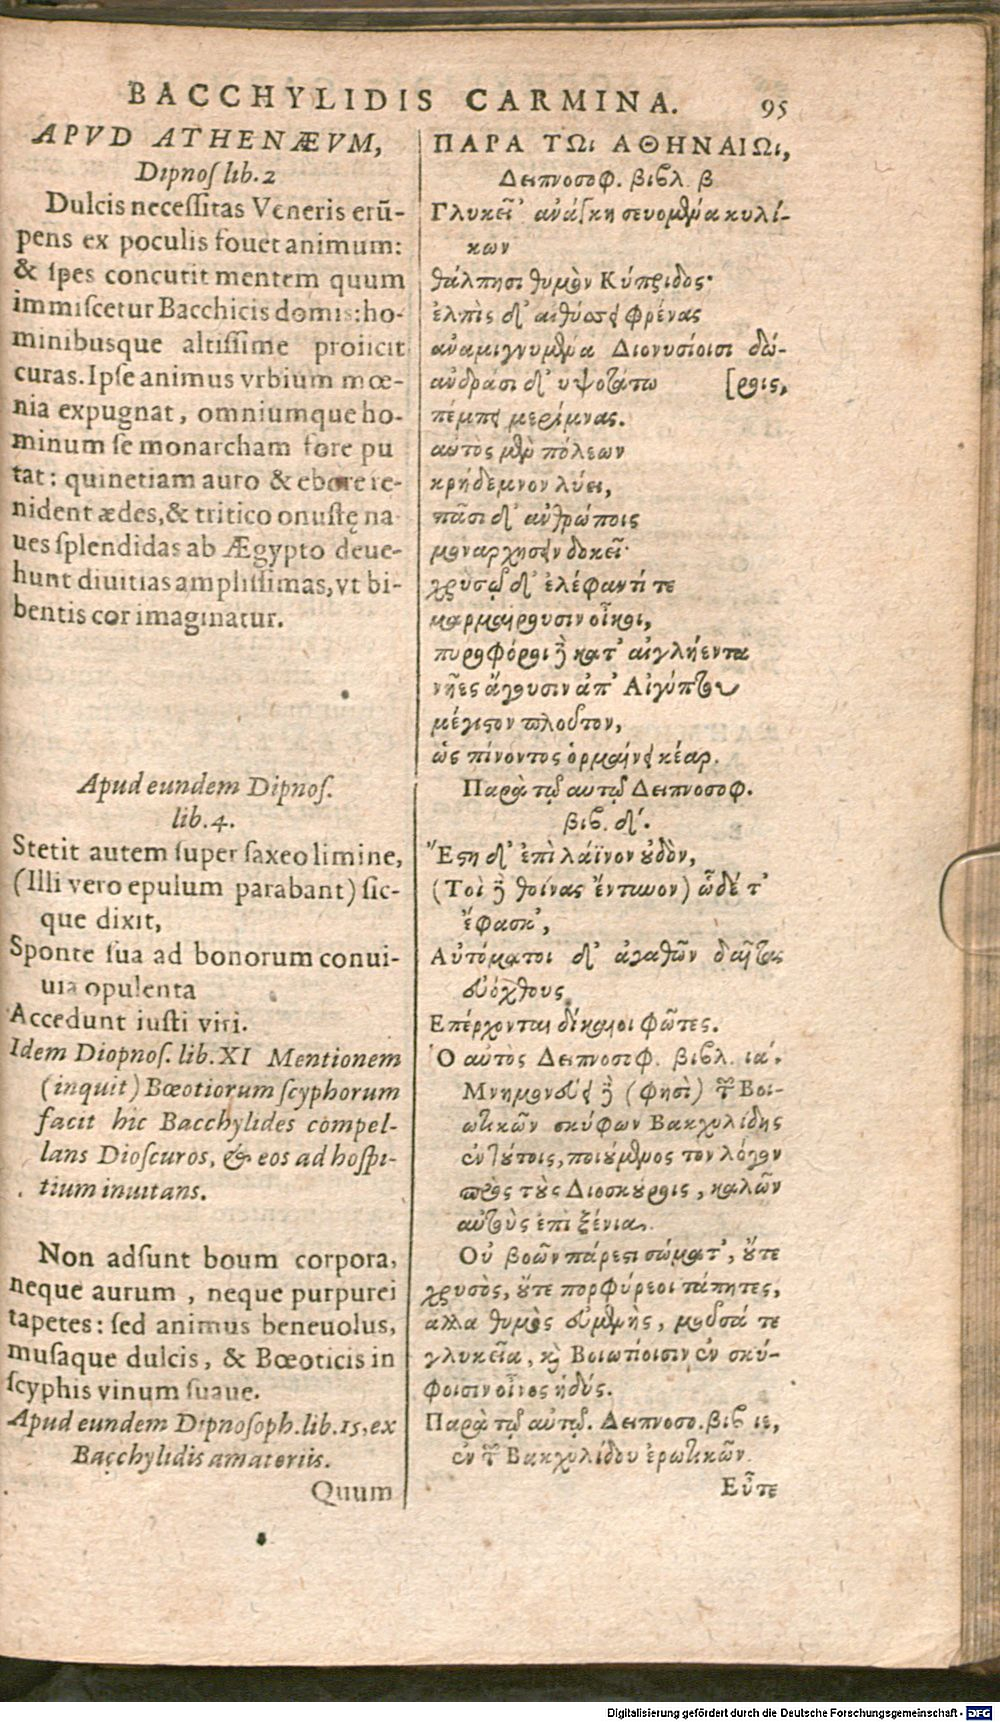 BACCHYLIDIS CARMINA. 95
APVD ATHENÆVM,
Dipnoſ lib.2
Dulcis neceſſitas Veneris erū-
pens ex poculis fouet animum:
& ſpes concutit mentem quum
immiſcetur Bacchicis domis: ho-
minibusque altiſſime proiicit
curas. Ipſe animus vrbium mœ-
nia expugnat, omniumque ho-
minum ſe monarcham fore pu
tat: quinetiam auro & ebore re-
nident ædes, & tritico onuſtę na
ues ſplendidas ab Ægypto deue-
hunt diuitias ampliſſimas, vt bi-
bentis cor imaginatur.
Apud eundem Dipnoſ.
lib.4.
Stetit autem ſuper ſaxeo limine,
(Illi vero epulum parabant) ſic-
que dixit,
Sponte ſua ad bonorum conui-
uia opulenta
Accedunt iuſti viri.
Idem Diopnoſ. lib.XI Mentionem
(inquit) Bœotiorum ſcyphorum
facit hic Bacchylides compel-
lans Dioſcuros, & eos ad hoſpi-
tium inuitans.
Non adſunt boum corpora,
neque aurum, neque purpurei
tapetes: ſed animus beneuolus,
muſaque dulcis, & Bœoticis in
ſcyphis vinum ſuaue.
Apud eundem Dipnoſoph. lib.15, ex
Bacchylidis amatoriis.
Quum
ΠΑΡΑ ΤΩι ΑΘΗΝΑΙΩι,
Δειπνοσοφ. βιβλ β
Γλυκεῖ' ἀνάγκη σευομένα κυλί-
κων
θάλπησι θυμὸν Κύπριδος·
ἐλπὶς δ' αἰθύσσει φρένας
ἀναμιγνυμένα Διονυσίοισι δώ-
ἀνδράσι δ' ὑψοτάτω [ροις,
πέμπει μερίμνας.
αὐτὸς μὲν πόλεων
κρήδεμνον λύει,
πᾶσι δ' ἀνθρώποις
μοναρχήσειν δοκεῖ·
χρυσῷ δ' ἐλέφαντί τε
μαρμαίρουσιν οἶκοι,
πυροφόροι δὲ κατ' αἰγλήεντα
νῆες ἄγουσιν ἀπ' Αἰγύπτου
μέγιστον πλοῦτον,
ὡς πίνοντος ὁρμαίνει κέαρ.
Παρὰ τῷ αυτῷ Δειπνοσοφ.
βιβ. δ'.
Ἔστη δ' ἐπὶ λάϊνον οὐδὸν,
(Τοὶ δὲ θοίνας ἔντυνον) ὧδέ τ'
ἔφασκ',
Αὐτόματοι δ' ἀγαθῶν δαῖτας
εὐόχθους
Ἐπέρχονται δίκαιοι φῶτες.
Ὁ αὐτὸς Δειπνοσοφ. βιβλ. ια'.
Μνημονεύει δὲ (φησὶ) τῶν Βοι-
ωτικῶν σκύφων Βακχυλίδης
ἐν τούτοις, ποιούμενος τον λόγον
πρὸς τοὺς Διοσκούροις, καλῶν
αὐτοὺς ἐπὶ ξένια.
Οὐ βοῶν πάρεστι σώματ', οὔτε
χρυσὸς, οὔτε πορφύρεοι τάπητες,
ἀλλα θυμὸς εὐμενὴς, μοῦσά τε
γλυκεῖα, καὶ Βοιωτίοισιν ἐν σκύ-
φοισιν οἶνος ἡδύς.
Παρὰ τῷ αὐτῷ. Δειπνοσο. βιβ ιε,
ἐν τῶν Βακχυλίδου ἐρωτικῶν.
Εὖτε
Digitalisierung gefördert durch die Deutsche Forschungsgemeinschaft - DFG